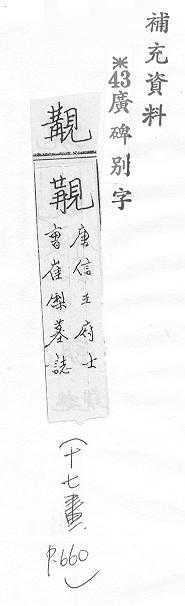 補充資料
※43廣碑別字
覯
覯
唐信王府士
曹崔墓誌
(十七畫, P.660)